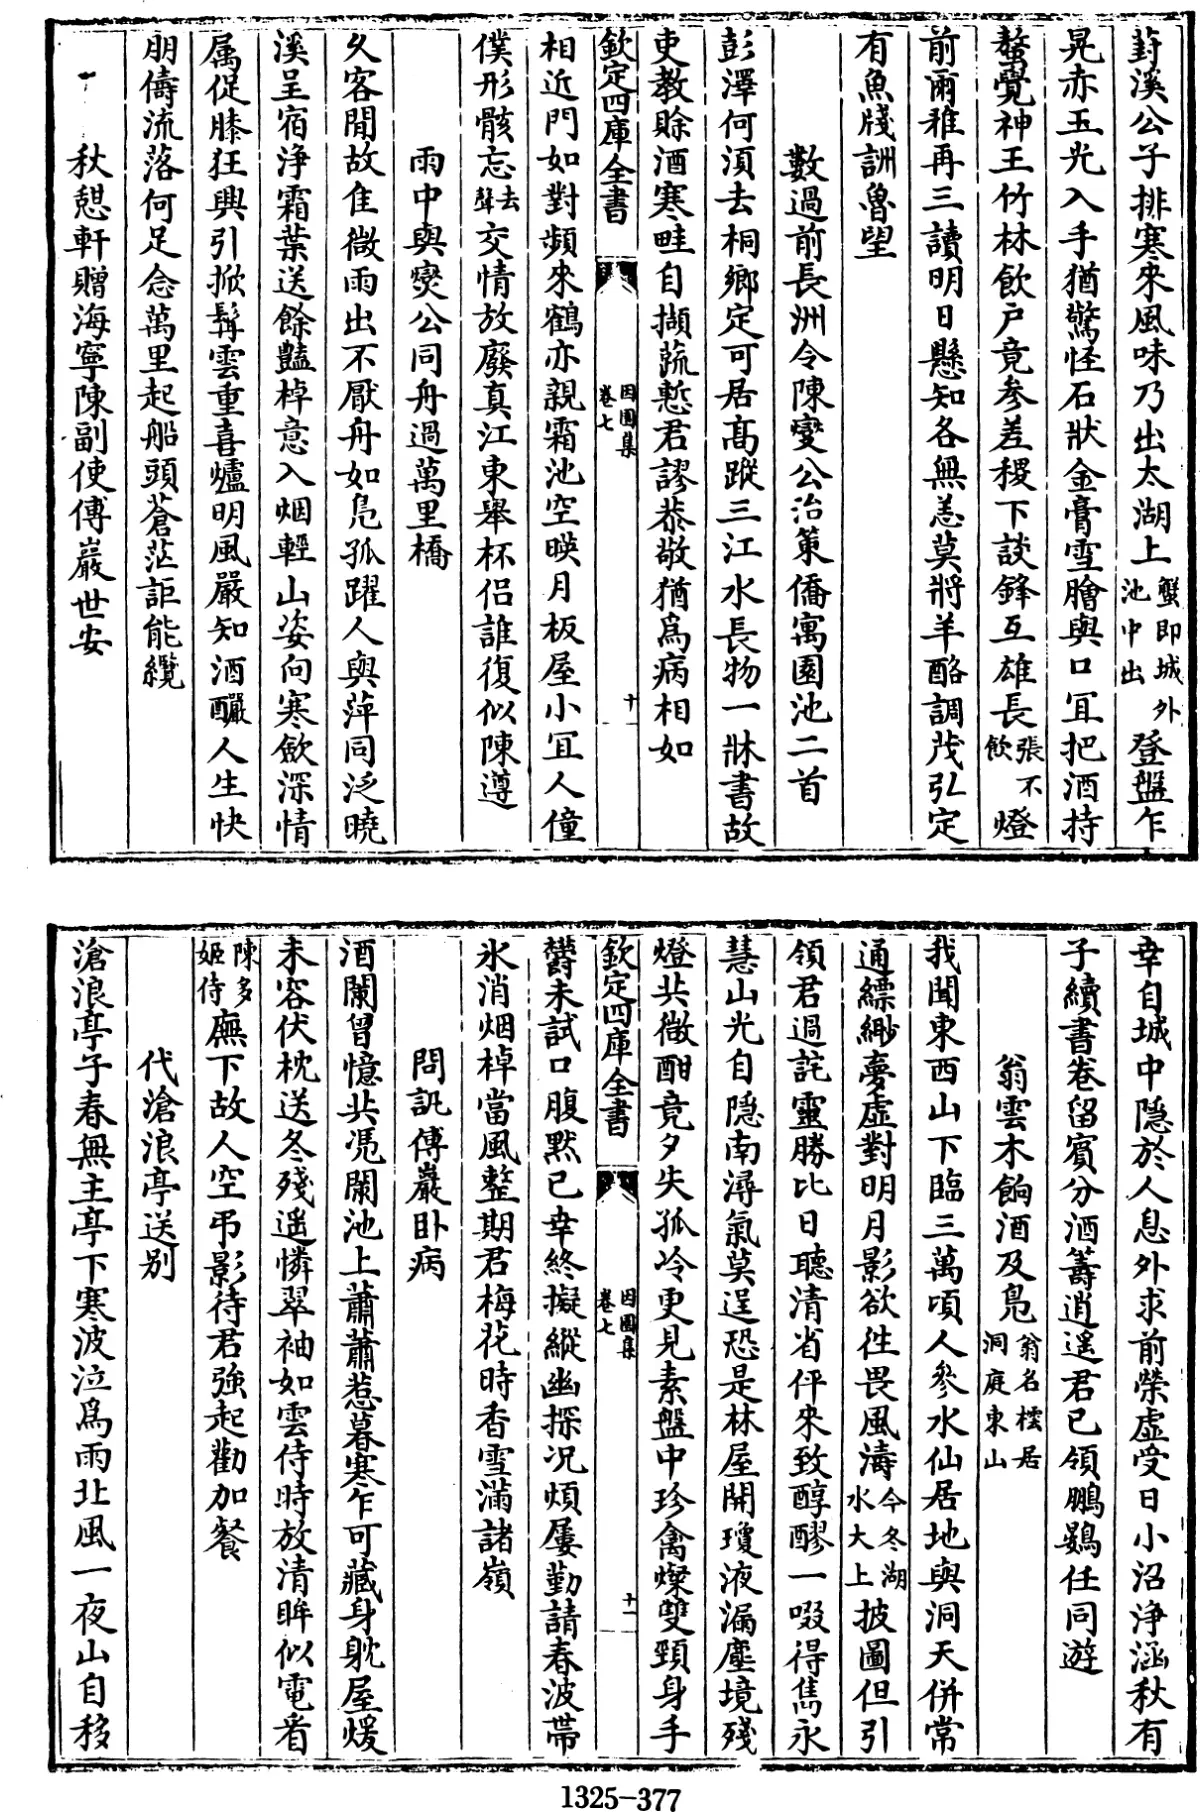 葑溪公子排寒來風味乃出太湖上蟹即城外池中出登盤乍
晃赤玉光入手猶驚怪石狀金膏雪膾與口宜把酒持
螯覺神王竹林飲户竟參差稷下談鋒互雄長張不飲燈
前爾雅再三讀明日懸知各無恙莫將羊酪調茂弘定
有魚牋訓魯望
數過前長洲令陳燮公治策僑寓園池二首
彭澤何須去桐鄉定可居髙蹤三江水長物一牀書故
吏教賒酒寒畦自擷蔬慙君謬恭敬猶爲病相如
欽定四庫全書
因園集
卷七
十
相近門如對頻來鶴亦親霜池空暎月板屋小宜人僮
僕形骸忘去聲交情放廢真江東舉杯侣誰復似陳遵
雨中與燮公同舟過萬里橋
久客閒故隹微雨出不厭舟如鳬孤躍人與萍同泛曉
溪呈宿浄霜葉送餘豔棹意入烟輕山姿向寒斂深情
属促膝狂興引掀髯雲重喜爐明風嚴知酒釅人生快
朋儔流落何足念萬里起船頭蒼茫詎能纜
秋憇軒贈海寧陳副使傅巖世安
幸自城中隱於人息外求前榮虚受日小沼浄涵秋有
子續書卷留賓分酒籌逍遥君已領鵬鷃任同遊
翁雲木餉酒及鳬翁名橒居洞庭東山
我聞東西山下臨三萬頃人參水仙居地與洞天併常
通縹緲夢虚對明月影欲徃畏風濤今冬湖水大上披圖但引
領君過詫靈勝比日聽清省伻來致醇醪一啜得雋永
慧山光自隱南潯氣莫逞恐是林屋開瓊液漏塵境殘
燈共微酣竟夕失孤冷更見素盤中珍禽燦雙頸身手
欽定四庫全書
因園集
卷七
十一
欝未試口腹黙已幸終擬縱幽探况煩屢勤請春波帯
氷消烟棹當風整期君梅花時香雪滿諸嶺
問訊傅巖卧病
酒闌曾憶共凭闌池上蕭蕭惹暮寒乍可藏身躭屋煖
未容伏枕送冬殘遥憐翠袖如雲侍時放清眸似電看
陳多姬侍廡下故人空弔影待君強起勸加餐
代滄浪亭送别
滄浪亭子春無主亭下寒波泣爲雨北風一夜山自移
1325-377